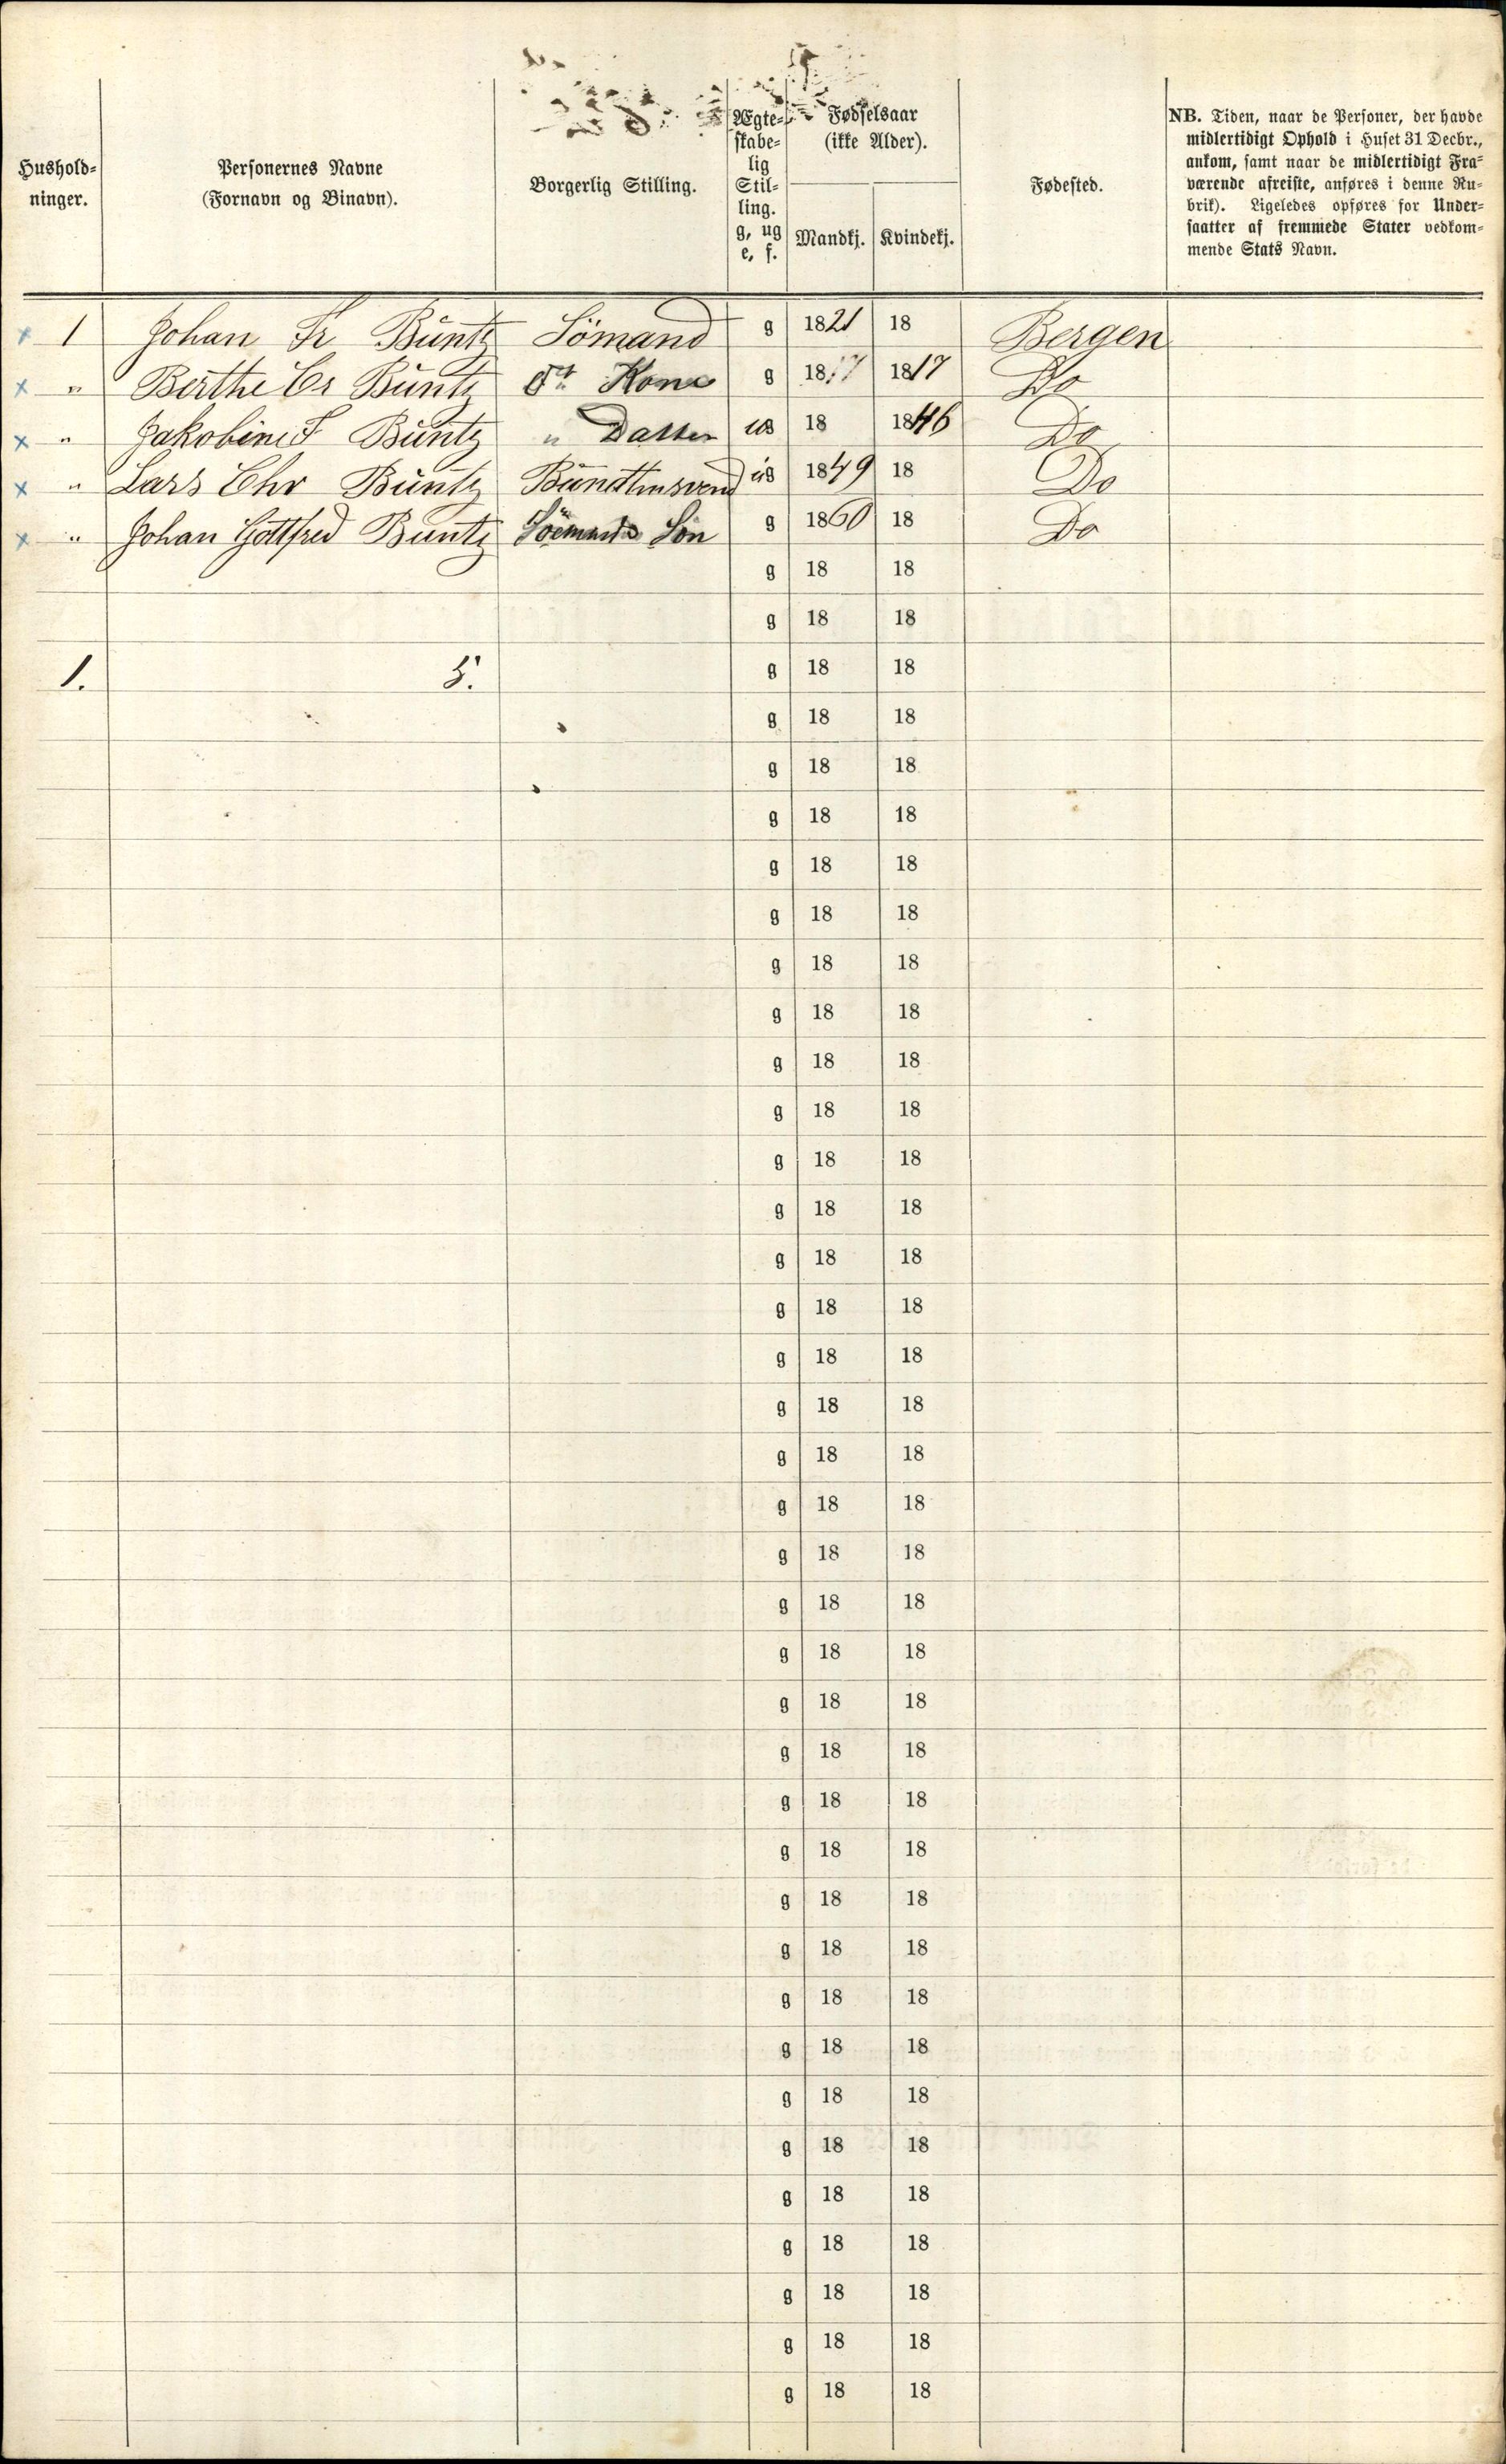 Hushold-
ninger.
Personernes Navne
(Fornavn og Binavn).
Borgerlig Stilling.
Ægte-
skabe-
lig
Stil-
ling.
g, ug
e, f.
Fødselsaar
(ikke Alder).
Mandkj. Kvindekj.
Fødested.
NB. Tiden, naar de Personer, der havde
midlertidigt Ophold i Huset 31 Decbr.,
ankom, samt naar de midlertidigt Fra-
værende afreiste, anføres i denne Ru-
brik). Ligeledes opføres for Under-
saatter af fremmede Stater vedkom-
mende Stats Navn.
x 1 Johan Fr Büntz Sömand g 1821 18 Bergen
x " Berthe Cr Büntz Kone g 1817 1817 Do
x " Jakobine F Büntz " Datter ug 18 1846 Do
x " Lars Chr Büntz ug 1849 18 Do
x " Johan Gottfred Büntz Sömands Sön g 1860 18 Do
g 18 18
g 18 18
1. 5. g 18 18
g 18 18
g 18 18
g 18 18
g 18 18
g 18 18
g 18 18
g 18 18
g 18 18
g 18 18
g 18 18
g 18 18
g 18 18
g 18 18
g 18 18
g 18 18
g 18 18
g 18 18
g 18 18
g 18 18
g 18 18
g 18 18
g 18 18
g 18 18
g 18 18
g 18 18
g 18 18
g 18 18
g 18 18
g 18 18
g 18 18
g 18 18
g 18 18
g 18 18
g 18 18
g 18 18